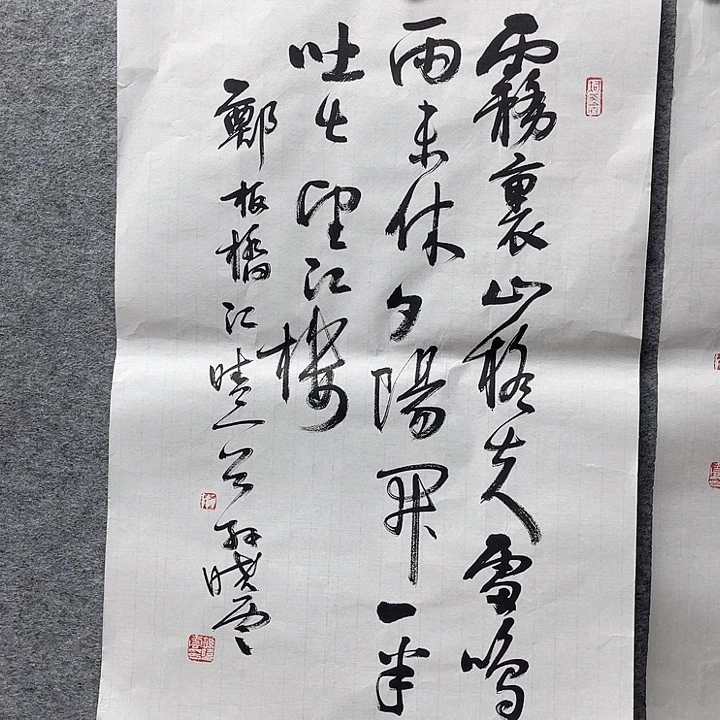 霧裹山疑失雷鳴
雨未休夕陽開一半
吐出望江樓
鄭板橋江晴 曉雲